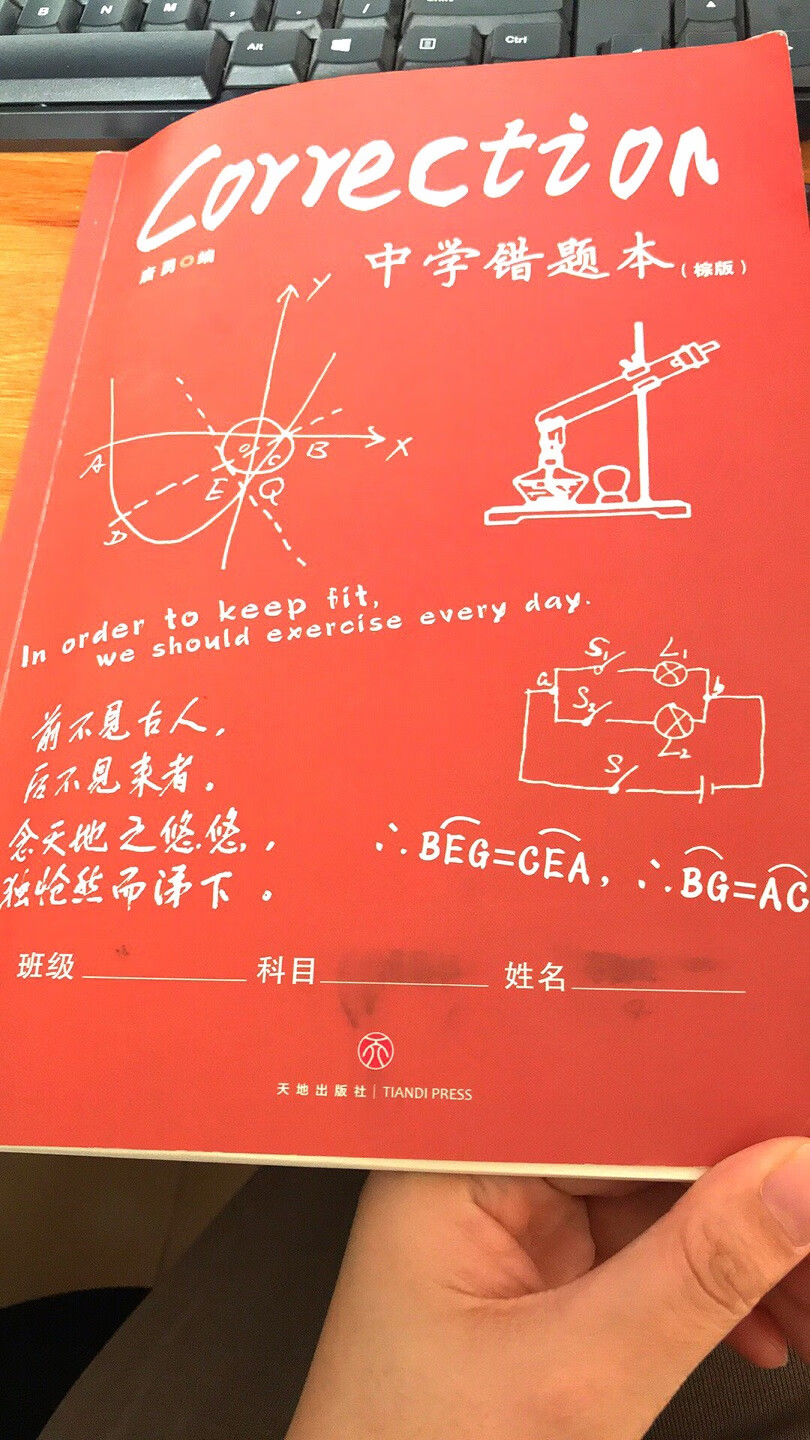 B N M , . /
Alt Ctrl
Correction
唐勇 编
中学错题本(棕版)
Y
A O C B X
E Q
D
In order to keep fit,
we should exercise every day.
S₁ L₁
a b
S₂
L₂
S
前不见古人,
后不见来者。
念天地之悠悠,
独怆然而涕下。
∴BEG=CEA, ∴BG=AC
班级 科目 姓名
天地出版社 | TIANDI PRESS